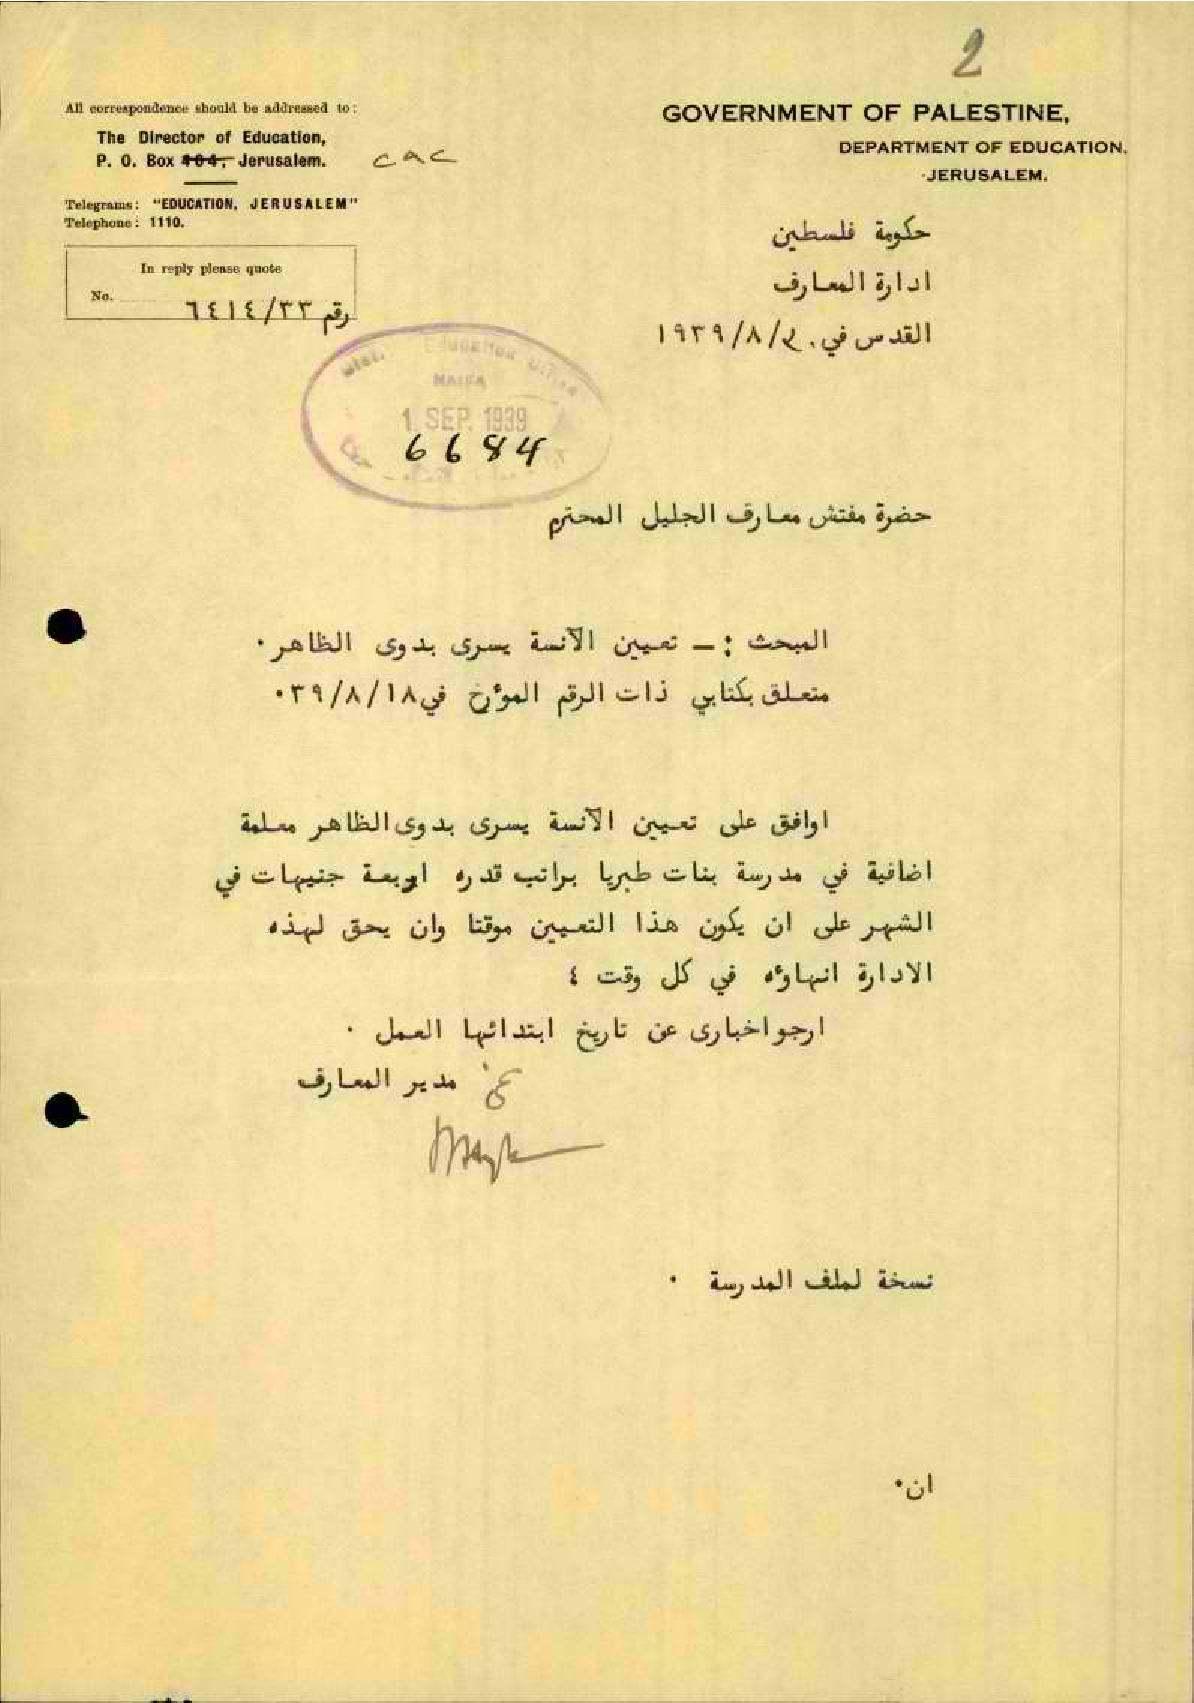 2
All correspondence should be addressed to:
The Director of Education,
P. O. Box 404, Jerusalem.
Telegrams: "EDUCATION, JERUSALEM"
Telephone: 1110.
In reply please quote
No.
رقم ٦٤١٤/٣٣
GOVERNMENT OF PALESTINE,
DEPARTMENT OF EDUCATION.
JERUSALEM.
حكومة فلسطين
ادارة المعارف
القدس في /٨/١٩٣٩
Dist. Education Office
HAIFA
1. SEP. 1939
6684
حضرة مفتش معارف الجليل المحترم
المبحث :ـ تعيين الآنسة يسرى بدوى الظاهر٠
متعلق بكتابي ذات الرقم المؤرخ في ٣٩/٨/١٨٠
اوافق على تعيين الآنسة يسرى بدوى الظاهر معلمة
اضافية في مدرسة بنات طبريا براتب قدره اربعة جنيهات في
الشهر على ان يكون هذا التعيين موقتا وان يحق لهذه
الادارة انهاؤه في كل وقت ٤
ارجو اخبارى عن تاريخ ابتدائها العمل ٠
ع مدير المعارف
نسخة لملف المدرسة ٠
ان٠